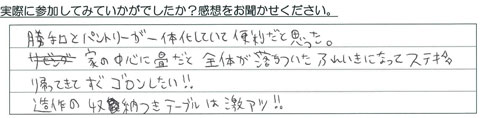 実際に参加してみていかがでしたか？感想をお聞かせください。
勝手口とパントリーが一体化していて便利だと思った。
家の中心に畳だと全体が落ちついたふんいきになってステキ。
帰ってきてすぐゴロンしたい！！
造作の収納つきテーブルは激アツ！！